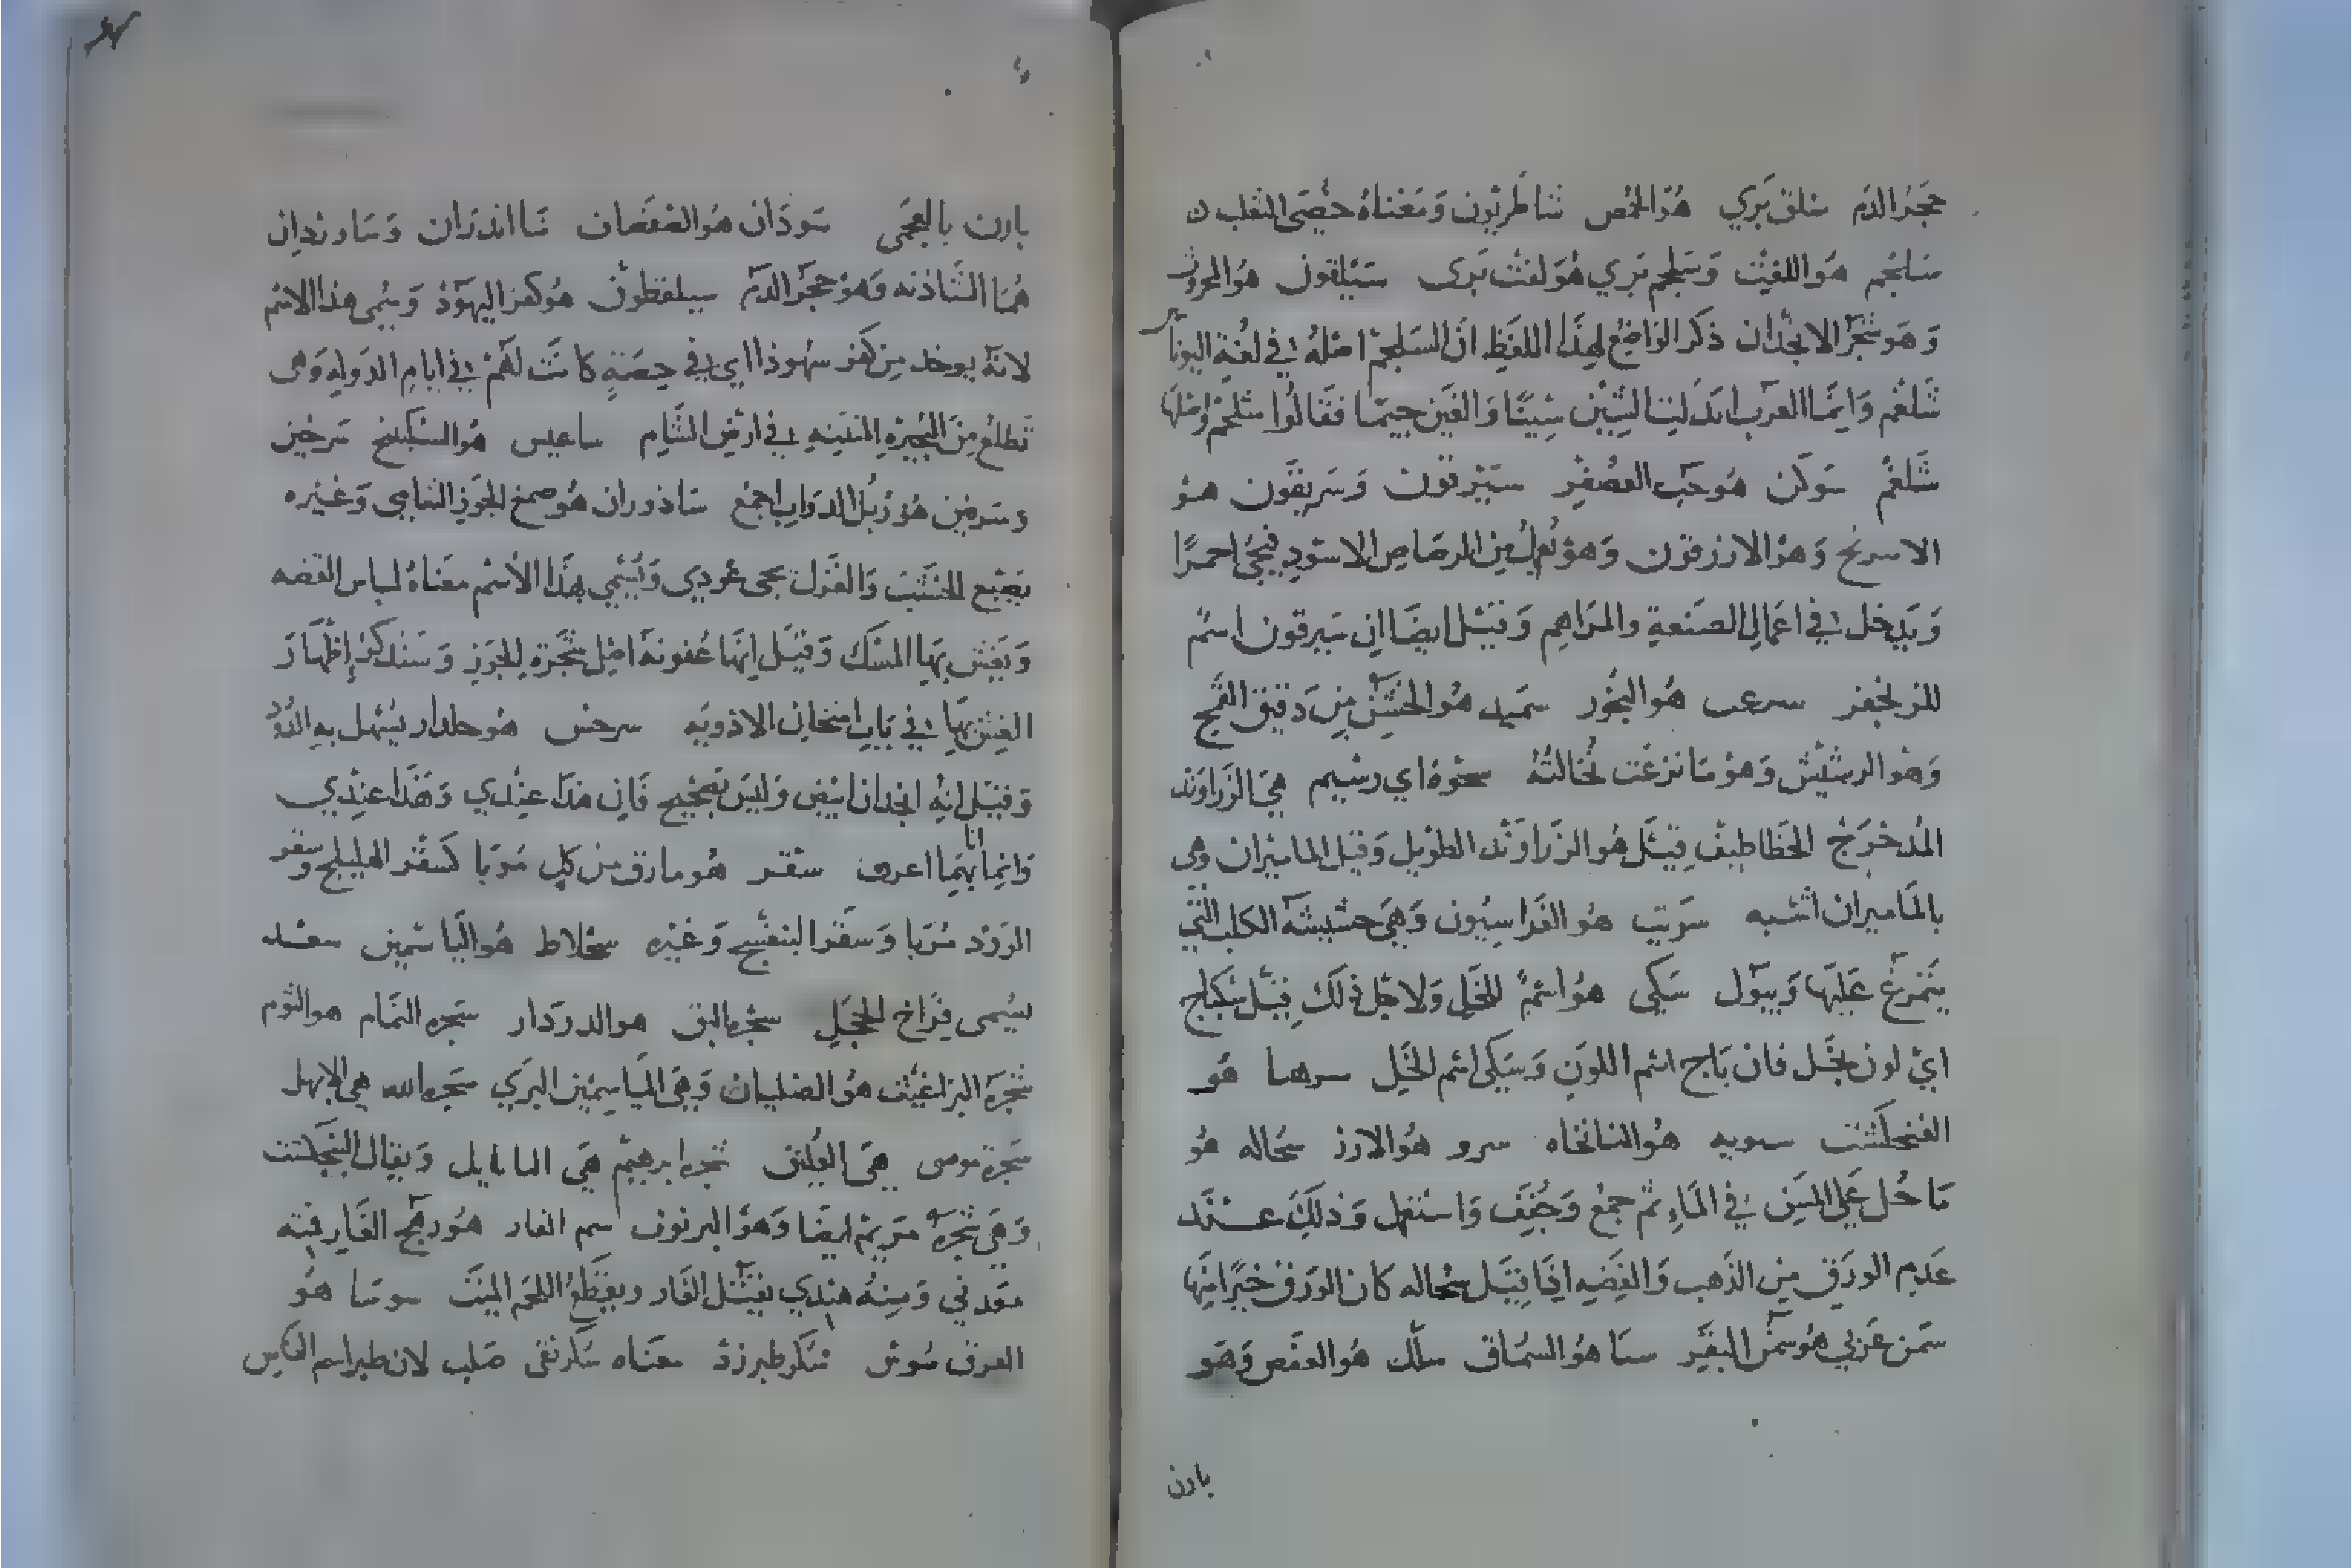 حجر الدم سلق بري هو الحمص شاطريون ومعناه خصى الثعلب
سلجم هو اللفت وسلجم بري هو لفت بري سيلقون هو المحروث
وهو شجر الانجدان ذكر الواضع لهذا اللفظ ان السلجم اصله في لغة اليونا
شلغم وانما العرب ابدلت الشين سينا والغين جيما فقالوا سلجم واصلها
شلغم سوكن هو حب العصفر سيرقون وسريقون هو
الاسرنج وهو الازرقون وهو يعمل من الرصاص الاسود فيجي احمرا
ويدخل في اعمال الصنعة والمراهم وقيل ايضا ان سيرقون اسم
للزنجفر هو البخور سميد هو الخشن من دقيق القمح
وهو الرشيش وهو ما نزعت نخالته اي رشيم هي الزراوند
المدحرج الخطاطيف قيل هو الزراوند الطويل وقيل الماميران وهى
بالماميران اشبه هو الفراسيون وهي حشيشة الكلب التي
يتمرغ عليها ويبول سكى هو اسم للخل ولاجل ذلك قيل سكباج
اي لون بخل فان باج اسم اللون وسكى اسم الخل هو
الفنجنكشت هو النانخاه سرو هو الارز سحاله هو
ما حل على المسن في الماء ثم جمع وجفف واستعمل وذلك عند
عدم الورق من الذهب والفضه اذا قيل سحاله كان الورق خيرا منها
سمن عربي هو سمن البقر هو السماق سلك هو العفص وهو
بارن
بارن بالعجمى سودان هو الصفصاف سا اندران وساوندان
هما الشاذنه وهو حجر الدم سيلقطون هو كفر اليهود وسمى هذا الاسم
لانه يوخذ من كفر يهوذا اي في حصة كانت لهم في ايام الدوله وهى
تطلع من البحيره المنتنه في ارض الشام ساعيس هو السكبينج سرجين
وسرقين هو زبل الدواب اجمع ساذوران هو صمغ الجوز الشامي وغيره
يصبغ الخشب والغزل يجى عودي وسمي بهذا الاسم معناه لباس الفضه
ويغش بها المسك وقيل انها عفونة اصل شجرة الجوز وسنذكر اظهار
الغش بها في باب امتحان الادويه سرخس هو جلدار يسهل به الدود
وقيل انه انجدان ابيض وليس بصحيح فان هذا عندي وهذا عندي
وانما انا بهما اعرف سقر هو مارق من كل مربا كسقر الهليلج وسقر
الورد مربا وسقر البنفسج وغيره سجلاط هو الياسمين
يسمى فراخ الحجل شجره البق هو الدردار شجره النمام هو الثوم
شجرة البراغيث هو الصليان وهي الياسمين البري شجره الله هي الابهل
شجرة موسى هي العليق شجره ابرهيم هي ويقال البنجكشت
وهي شجرة مريم ايضا وهو البرنوف سم الفار هو رهج الفار فمنه
معدني ومنه هندي يقتل الفار ويقطع اللحم الميت سوسا هو
العرق سوس سكر طبرزد معناه سكر نقى صلب لان طبر اسم الفاس